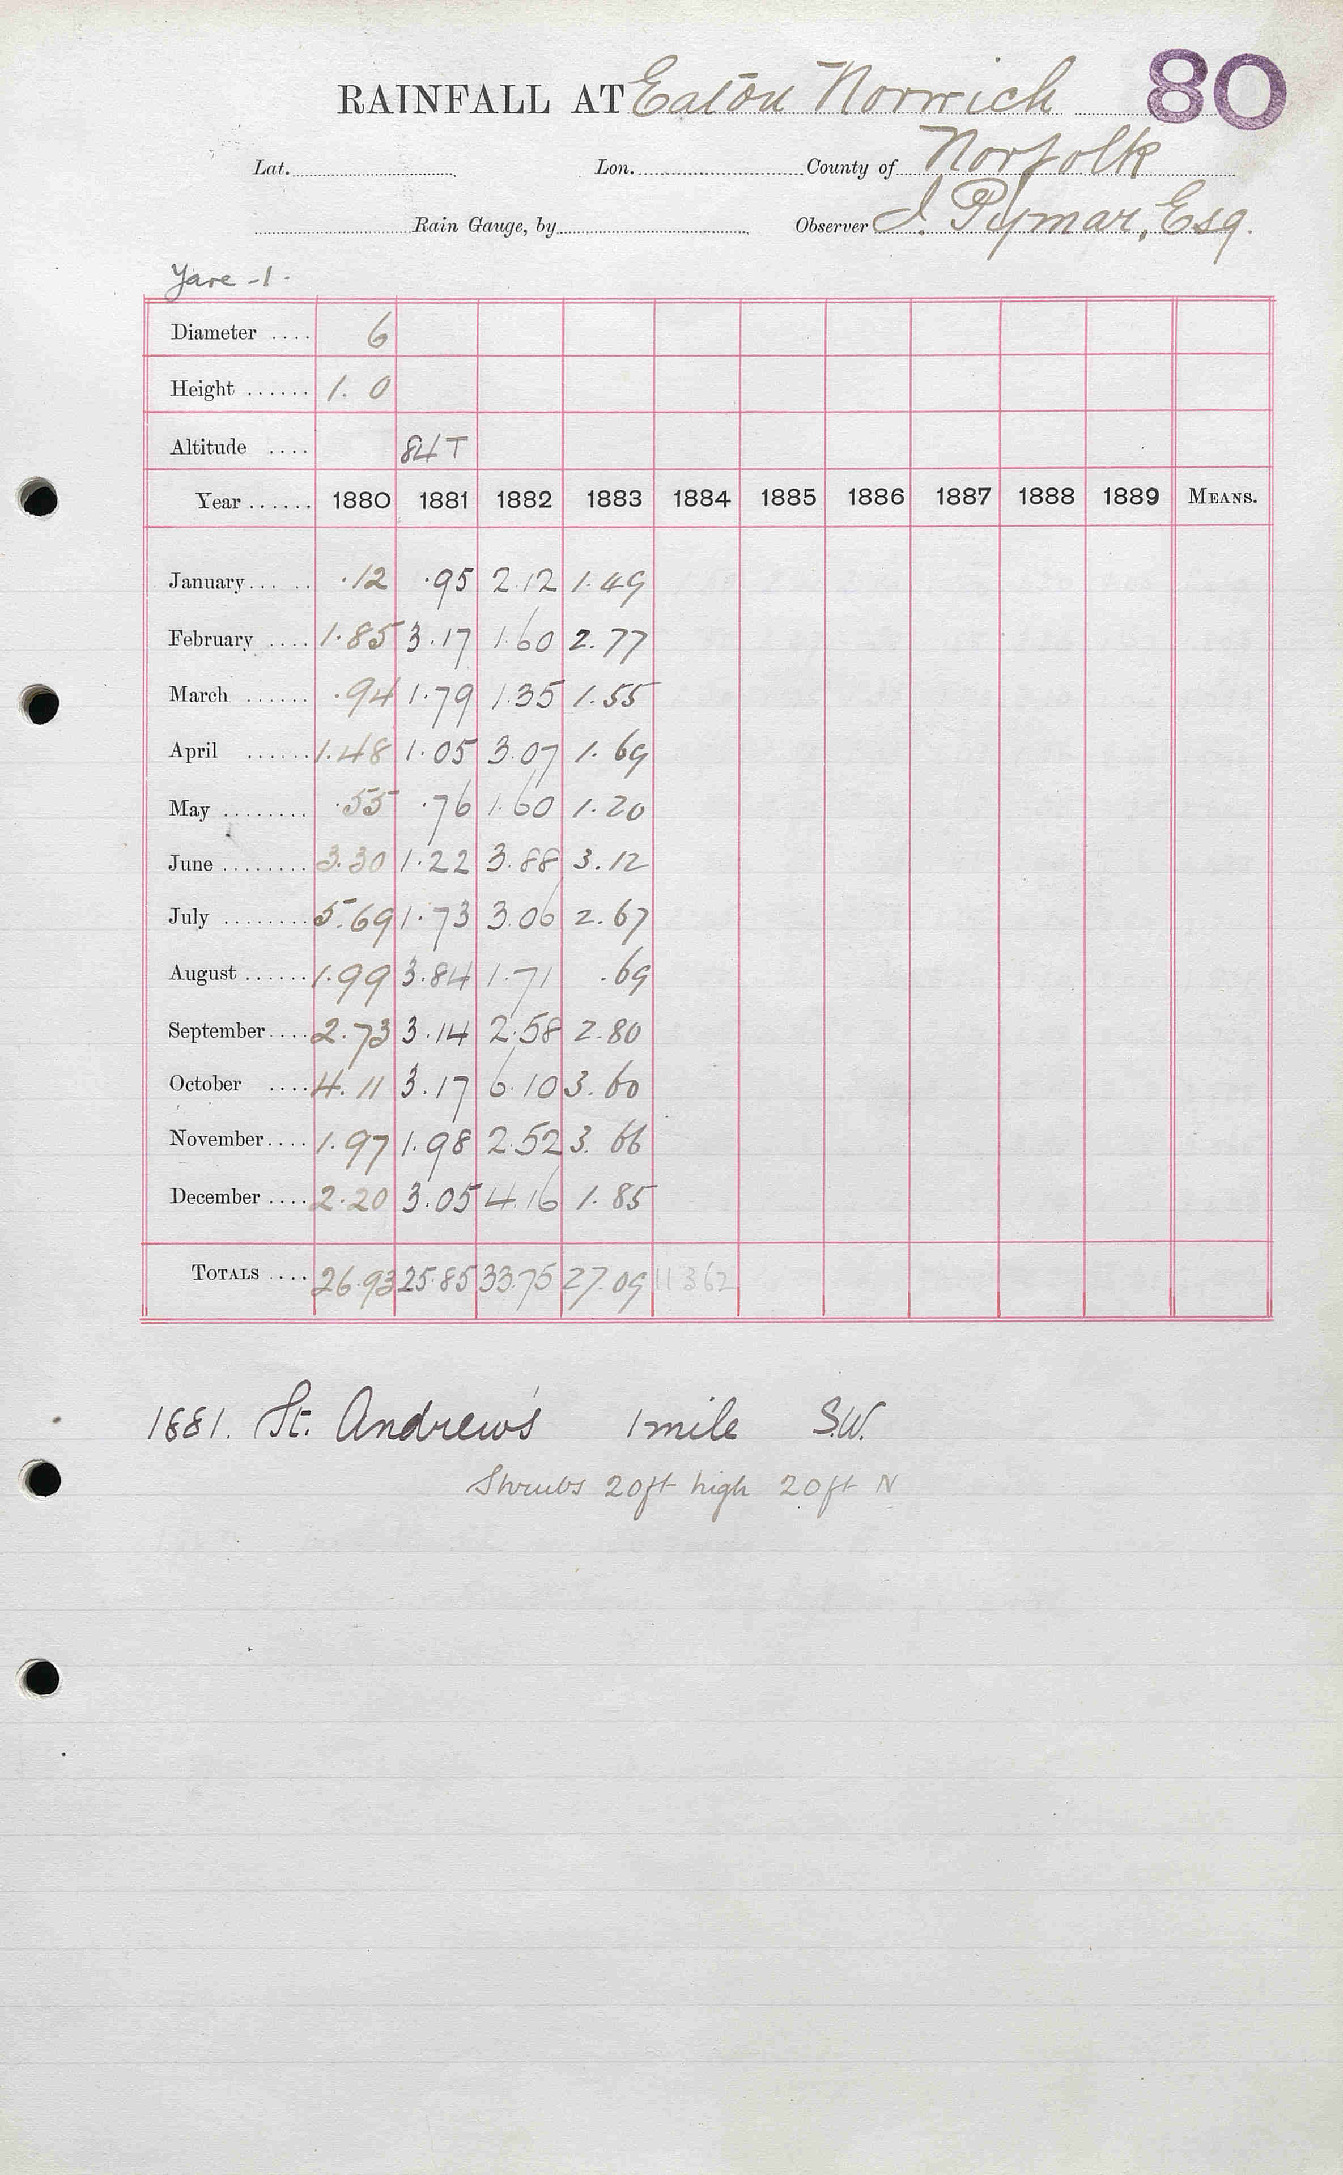 RAINFALL AT Eaton Norwich 80
Lat. Lon. County of Norfolk
Rain Gauge, by Observer J. Pymar, Esq.
Yare -1-
Diameter .... 6
Height ...... 1. 0
Altitude .... 84T
Year ...... 1880 1881 1882 1883 1884 1885 1886 1887 1888 1889 MEANS.
January...... .12 .95 2.12 1.49
February .... 1.85 3.17 1.60 2.77
March ...... .94 1.79 1.35 1.55
April ...... 1.48 1.05 3.07 1.69
May ........ .55 .76 1.60 1.20
June ........ 3.30 1.22 3.88 3.12
July ........ 5.69 1.73 3.06 2.67
August ...... 1.99 3.84 1.71 .69
September.... 2.73 3.14 2.58 2.80
October .... 4.11 3.17 6.10 3.60
November.... 1.97 1.98 2.52 3.66
December .... 2.20 3.05 4.16 1.85
TOTALS .... 26.93 25.85 33.75 27.09 11362
1881. St. Andrew's 1 mile S.W.
Shrubs 20ft high 20ft N